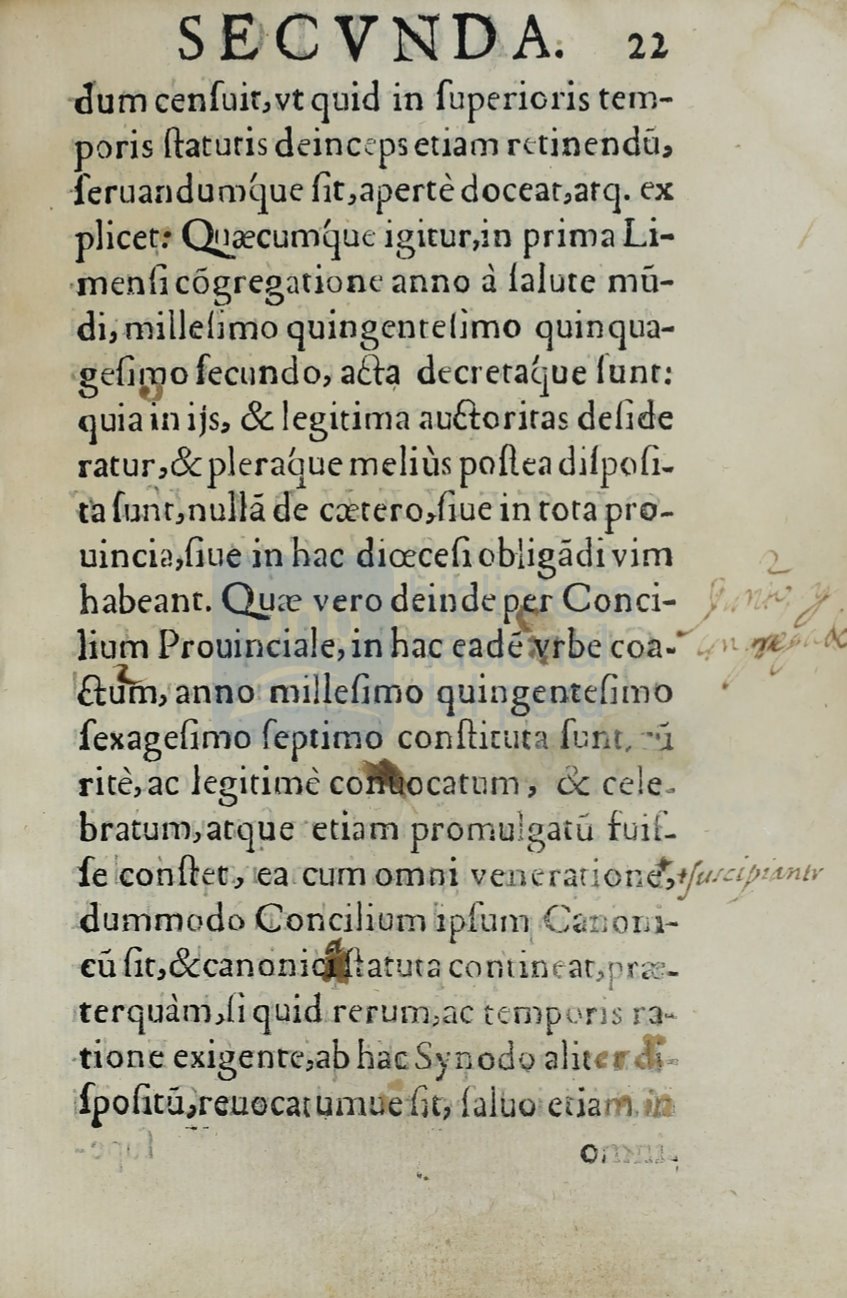 SECVNDA. 22
dum cenſuit, vt quid in ſuperioris tem-
poris ſtatutis deinceps etiam retinendū,
ſeruandumq́ue ſit, apertè doceat, atq. ex
plicet: Quæcumq́ue igitur, in prima Li-
menſi cōgregatione anno à ſalute mū-
di, milleſimo quingenteſimo quinqua-
geſimo ſecundo, acta decretaq́ue ſunt:
quia in ijs, & legitima auctoritas deſide
ratur, & pleraq́ue meliùs poſtea diſpoſi-
ta ſunt, nullā de cætero, ſiue in tota pro-
uincia, ſiue in hac diœceſi obligādi vim
habeant. Quæ vero deinde per Conci-
lium Prouinciale, in hac eadē vrbe coa-
ctum, anno milleſimo quingenteſimo
ſexageſimo ſeptimo conſtituta ſunt,
ritè, ac legitimè conuocatum, & cele-
bratum, atque etiam promulgatū fuiſ-
ſe conſtet, ea cum omni veneratione, +ſuscipiantr
dummodo Concilium ipſum Canoni-
cū ſit, & canonica ſtatuta contineat, præ-
terquàm, ſi quid rerum, ac temporis ra-
tione exigente, ab hac Synodo aliter di-
ſpoſitū, reuocatumue ſit, ſaluo etiam in
omni-